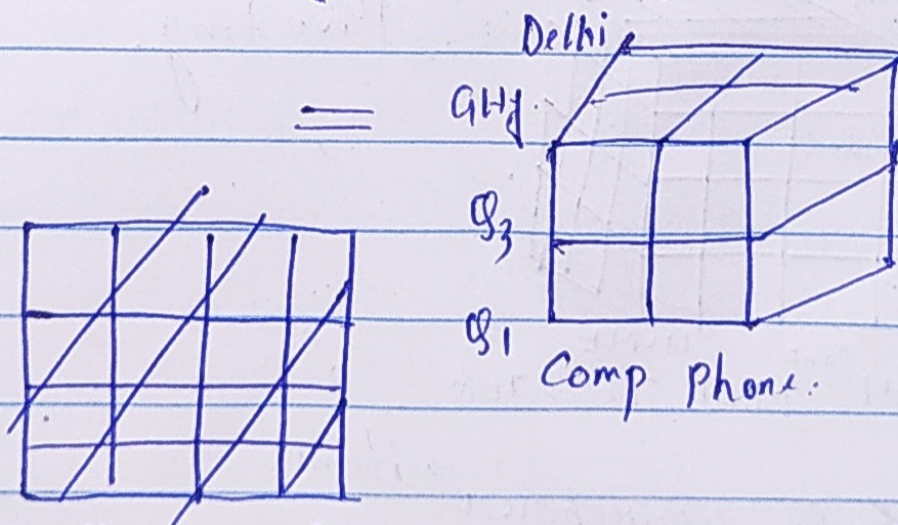 Delhi
=
GHy.
Q3
Q1
Comp Phone.